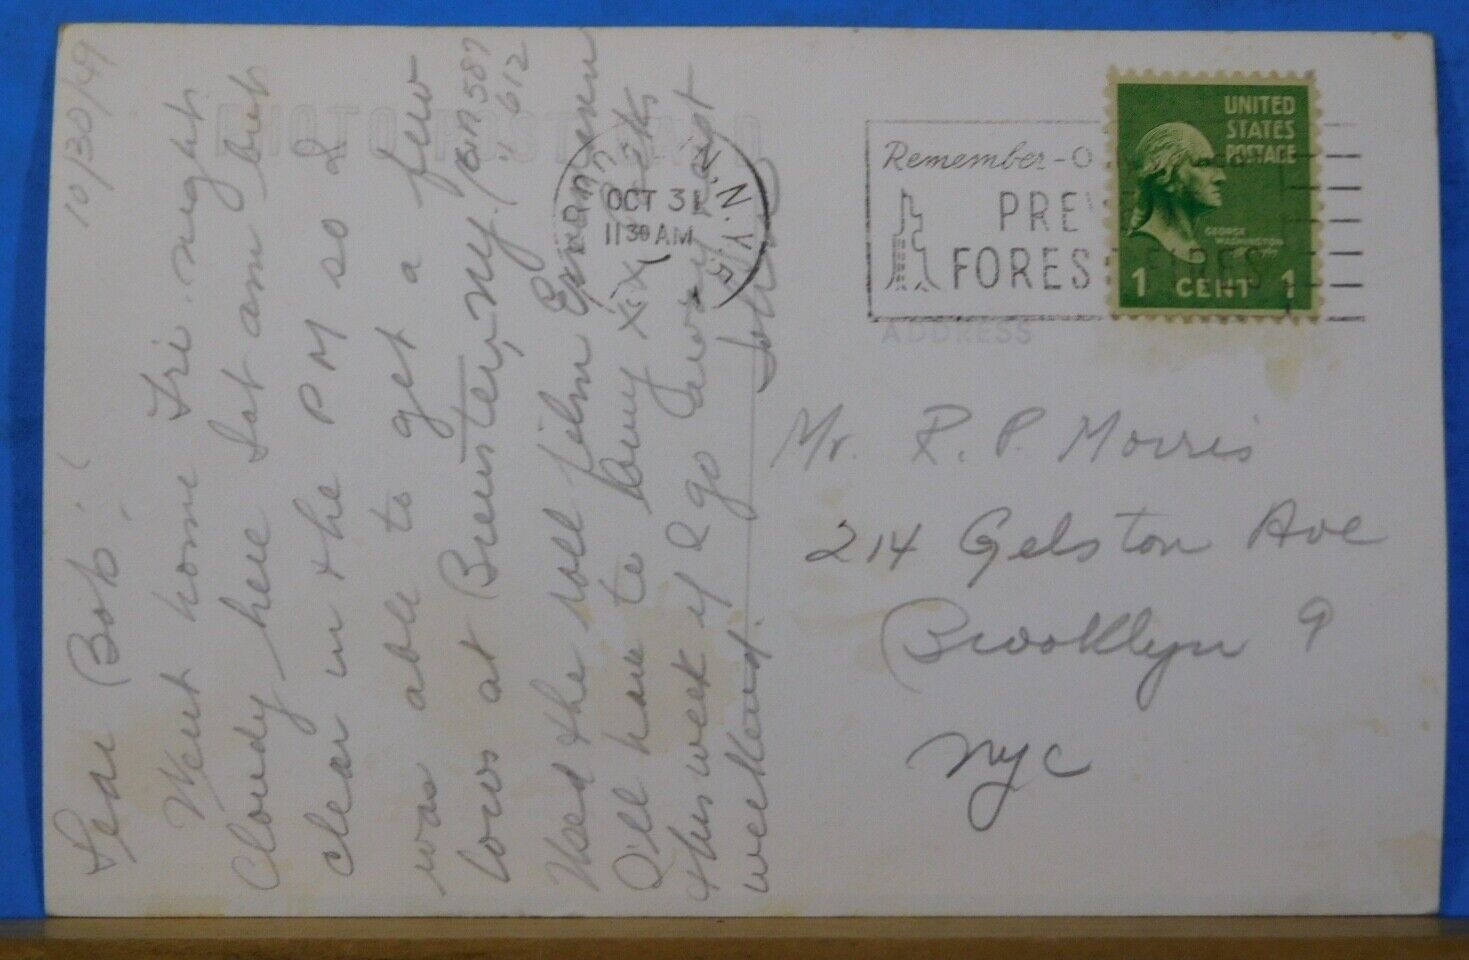 10/30/49
Dear Bob:
Went home Fri. night.
Cloudy here Sat am but
clear in the PM so I
was able to get a few
locos at Brewster, NY.
587
" 612
Used the roll film
I'll have to
this week if I go away next
weekend.
PHOTO POST CARD
OCT 31
11 30 AM
N.Y.
Remember-O
PRE
FOREST FIRES
UNITED
STATES
POSTAGE
GEORGE
WASHINGTON
1 CENT 1
ADDRESS
Mr. R. P. Morris
214 Gelston Ave
Brooklyn 9
NYC